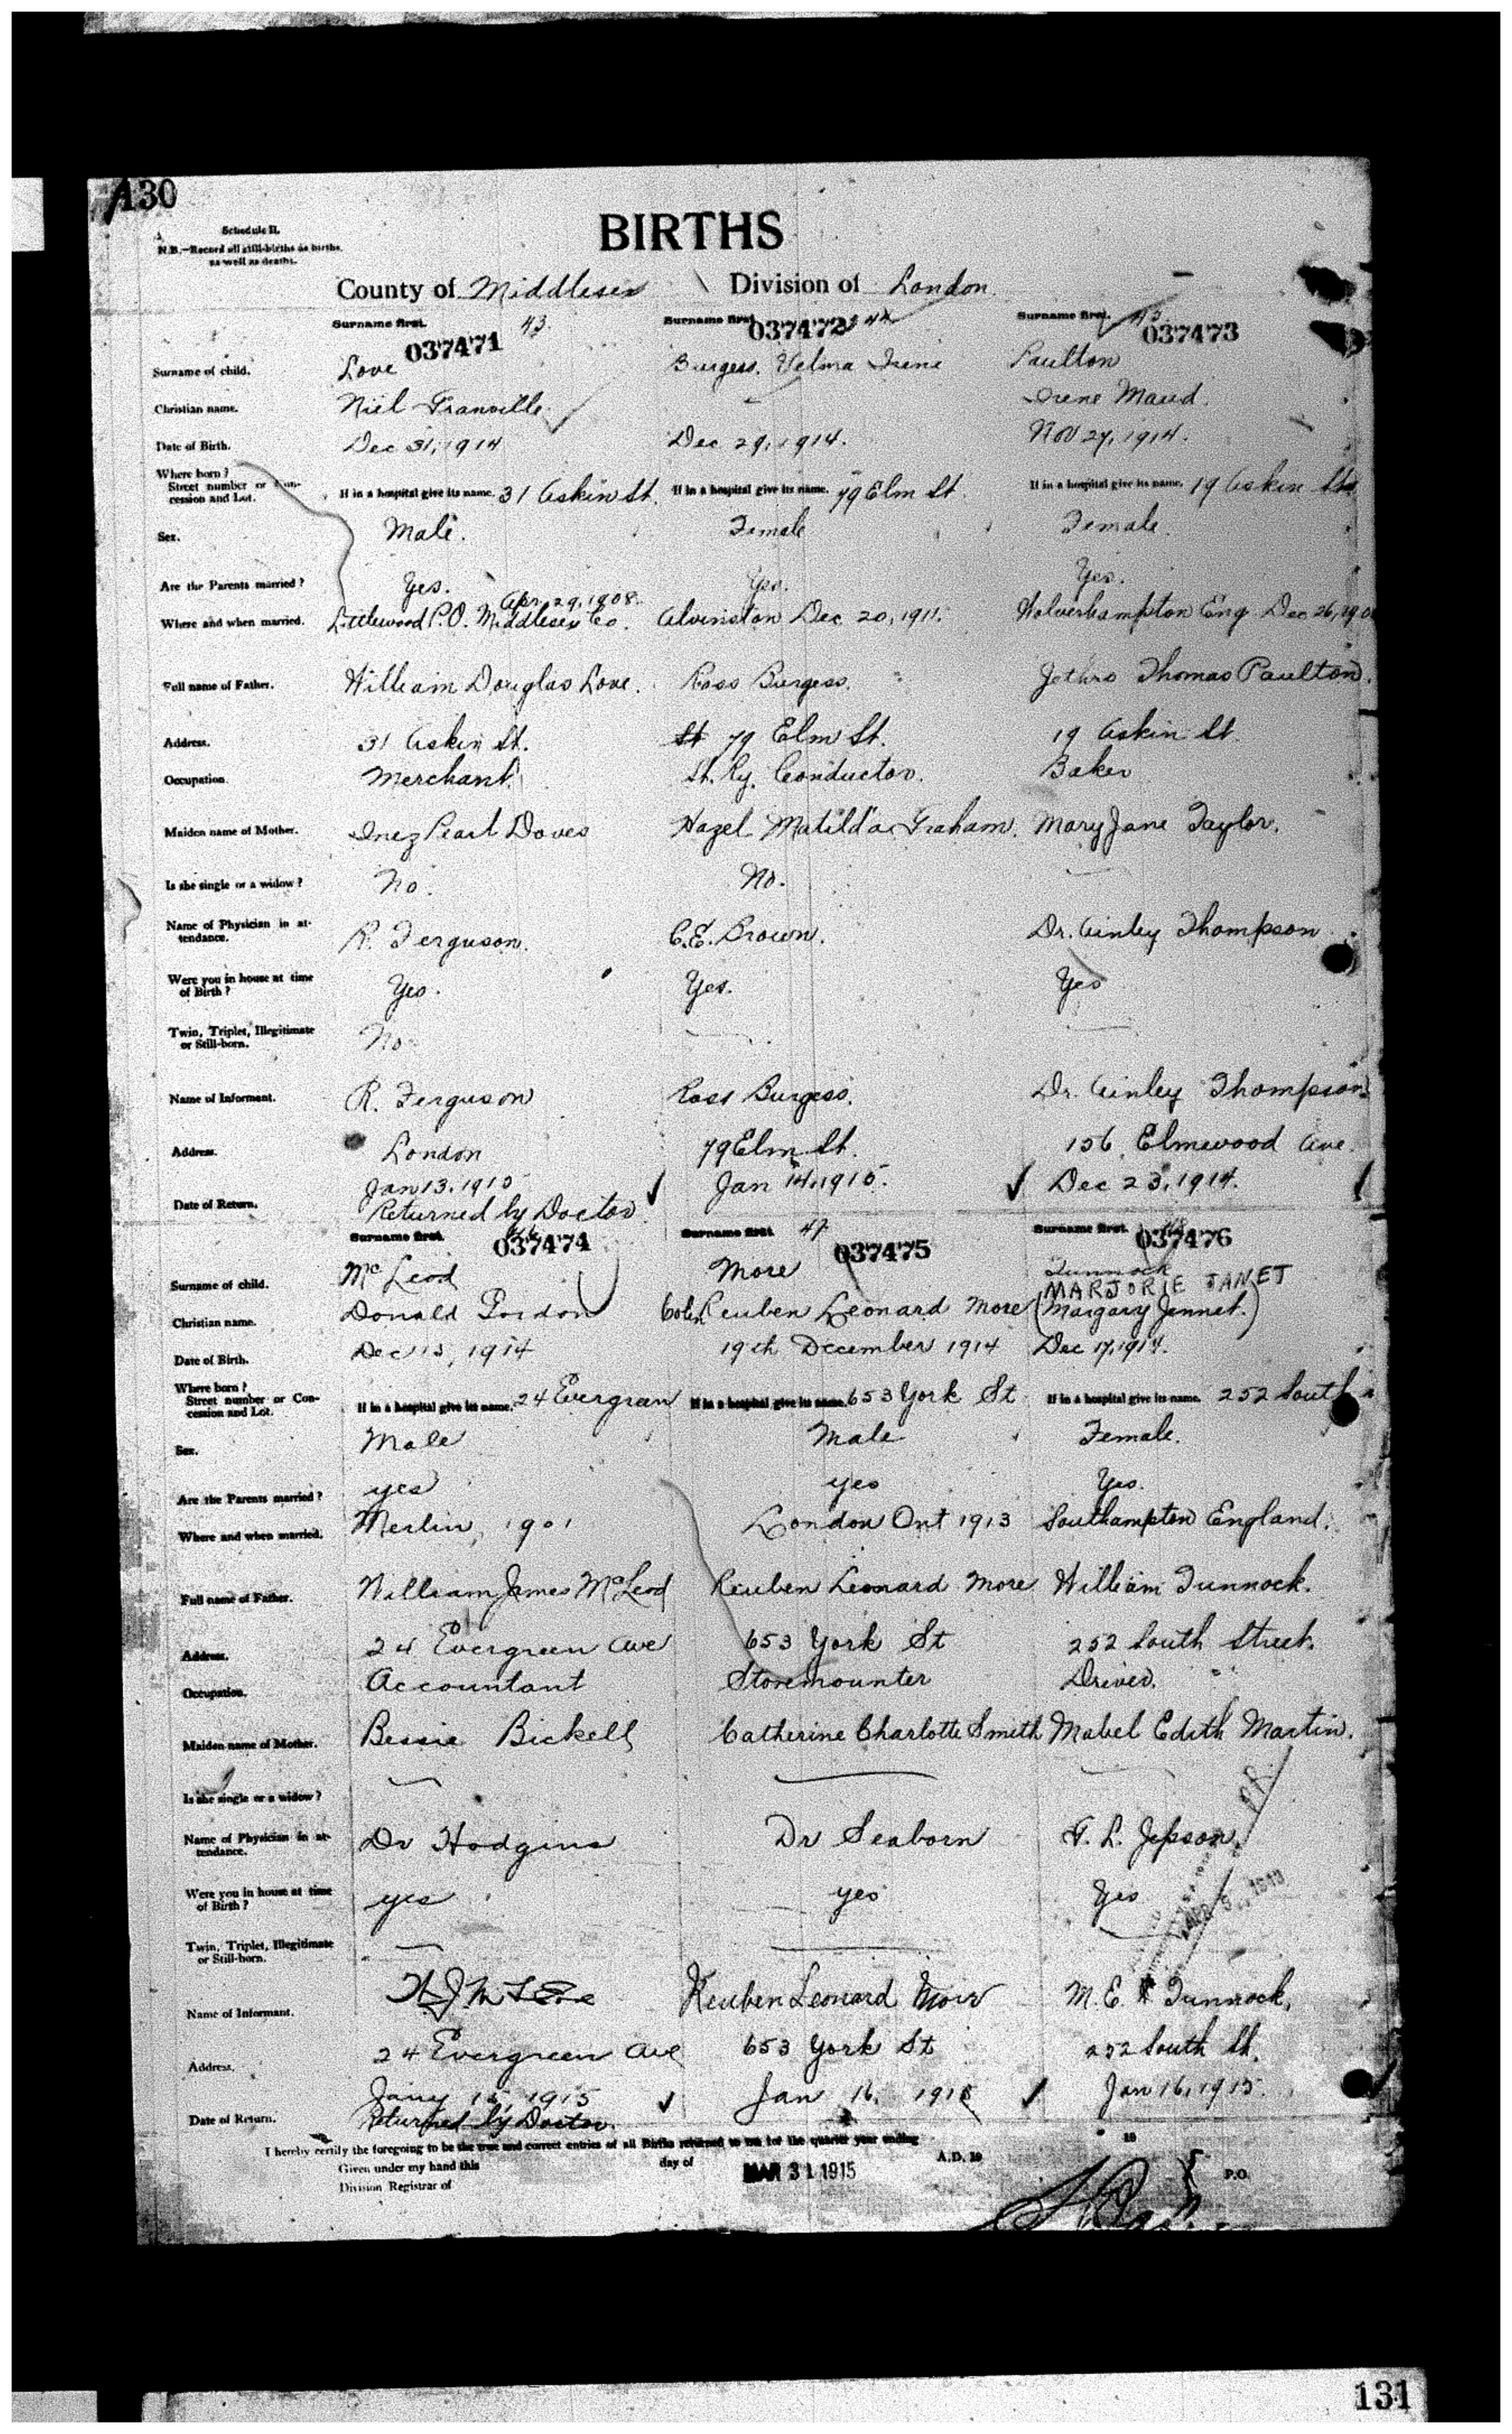 130
Schedule II.
N.B.—Record all still-births as births,
as well as deaths.
BIRTHS
County of Middlesex Division of London
Surname first. 43. Surname first. 44 Surname first. 45
037471 037472 037473
Surname of child. Love Burgess. Velma Irene Paulton
Christian name. Niel Granville Irene Maud.
Date of Birth. Dec 31, 1914 Dec 29, 1914. Nov 27, 1914.
Where born?
Street number or Con-
cession and Lot. If in a hospital give its name. 31 Askin St. If in a hospital give its name. 79 Elm St. If in a hospital give its name. 19 Askin St
Sex. Male. Female Female.
Are the Parents married? Yes. Yes. Yes.
Apr. 29, 1908.
Where and when married. Littlewood P.O. Middlesex Co. Alvinston Dec 20, 1911. Wolverhampton Eng Dec 26,
Full name of Father. William Douglas Love. Ross Burgess. Jethro Thomas Paulton.
Address. 31 Askin St. St 79 Elm St. 19 Askin St.
Occupation. Merchant. St. Ry. Conductor. Baker
Maiden name of Mother. Inez Pearl Hazel Matilda Graham. Mary Jane Taylor.
Is she single or a widow? No. No.
Name of Physician in at-
tendance. R. Ferguson. C.E. Brown. Dr. Ainley Thompson
Were you in house at time
of Birth? Yes. Yes. Yes
Twin, Triplet, Illegitimate
or Still-born. No
Name of Informant. R. Ferguson Ross Burgess. Dr. Ainley Thompson
Address. London 79 Elm St. 156 Elmwood Ave.
Date of Return. Jan 13, 1915 Jan 14, 1915. Dec 23, 1914.
Returned by Doctor
Surname first. 46 Surname first. 47 Surname first. 48
037474 037475 037476
Surname of child. McLeod More Tunnock
MARJORIE JANET
Christian name. Donald Gordon Reuben Leonard More (Margary Jennet.)
Date of Birth. Dec 13, 1914 19th December 1914 Dec 17, 1914.
Where born?
Street number or Con-
cession and Lot. If in a hospital give its name. 24 Evergreen If in a hospital give its name. 653 York St If in a hospital give its name. 252 South
Sex. Male Male Female.
Are the Parents married? yes yes Yes.
Where and when married. Merlin, 1901 London Ont 1913 Southampton England.
Full name of Father. William James McLeod Reuben Leonard More William Tunnock.
Address. 24 Evergreen Ave 653 York St 252 South Street.
Occupation. Accountant Stovemounter Driver.
Maiden name of Mother. Bessie Bickell Catherine Charlotte Smith Mabel Edith Martin.
Is she single or a widow?
Name of Physician in at-
tendance. Dr Hodgins Dr Seaborn F. L. Jepson.
Were you in house at time
of Birth? yes yes Yes
Twin, Triplet, Illegitimate
or Still-born.
Name of Informant. W J McLeod Reuben Leonard More M. E. Tunnock,
Address. 24 Evergreen Ave 653 York St 252 South St.
Date of Return. Jany 15, 1915 Jan 16, 1915 Jan 16, 1915.
Returned by Doctor.
I hereby certify the foregoing to be the true and correct entries of all Births returned to me for the quarter year ending 19
Given under my hand this day of MAR 31 1915 A.D. 19
Division Registrar of P.O.
131